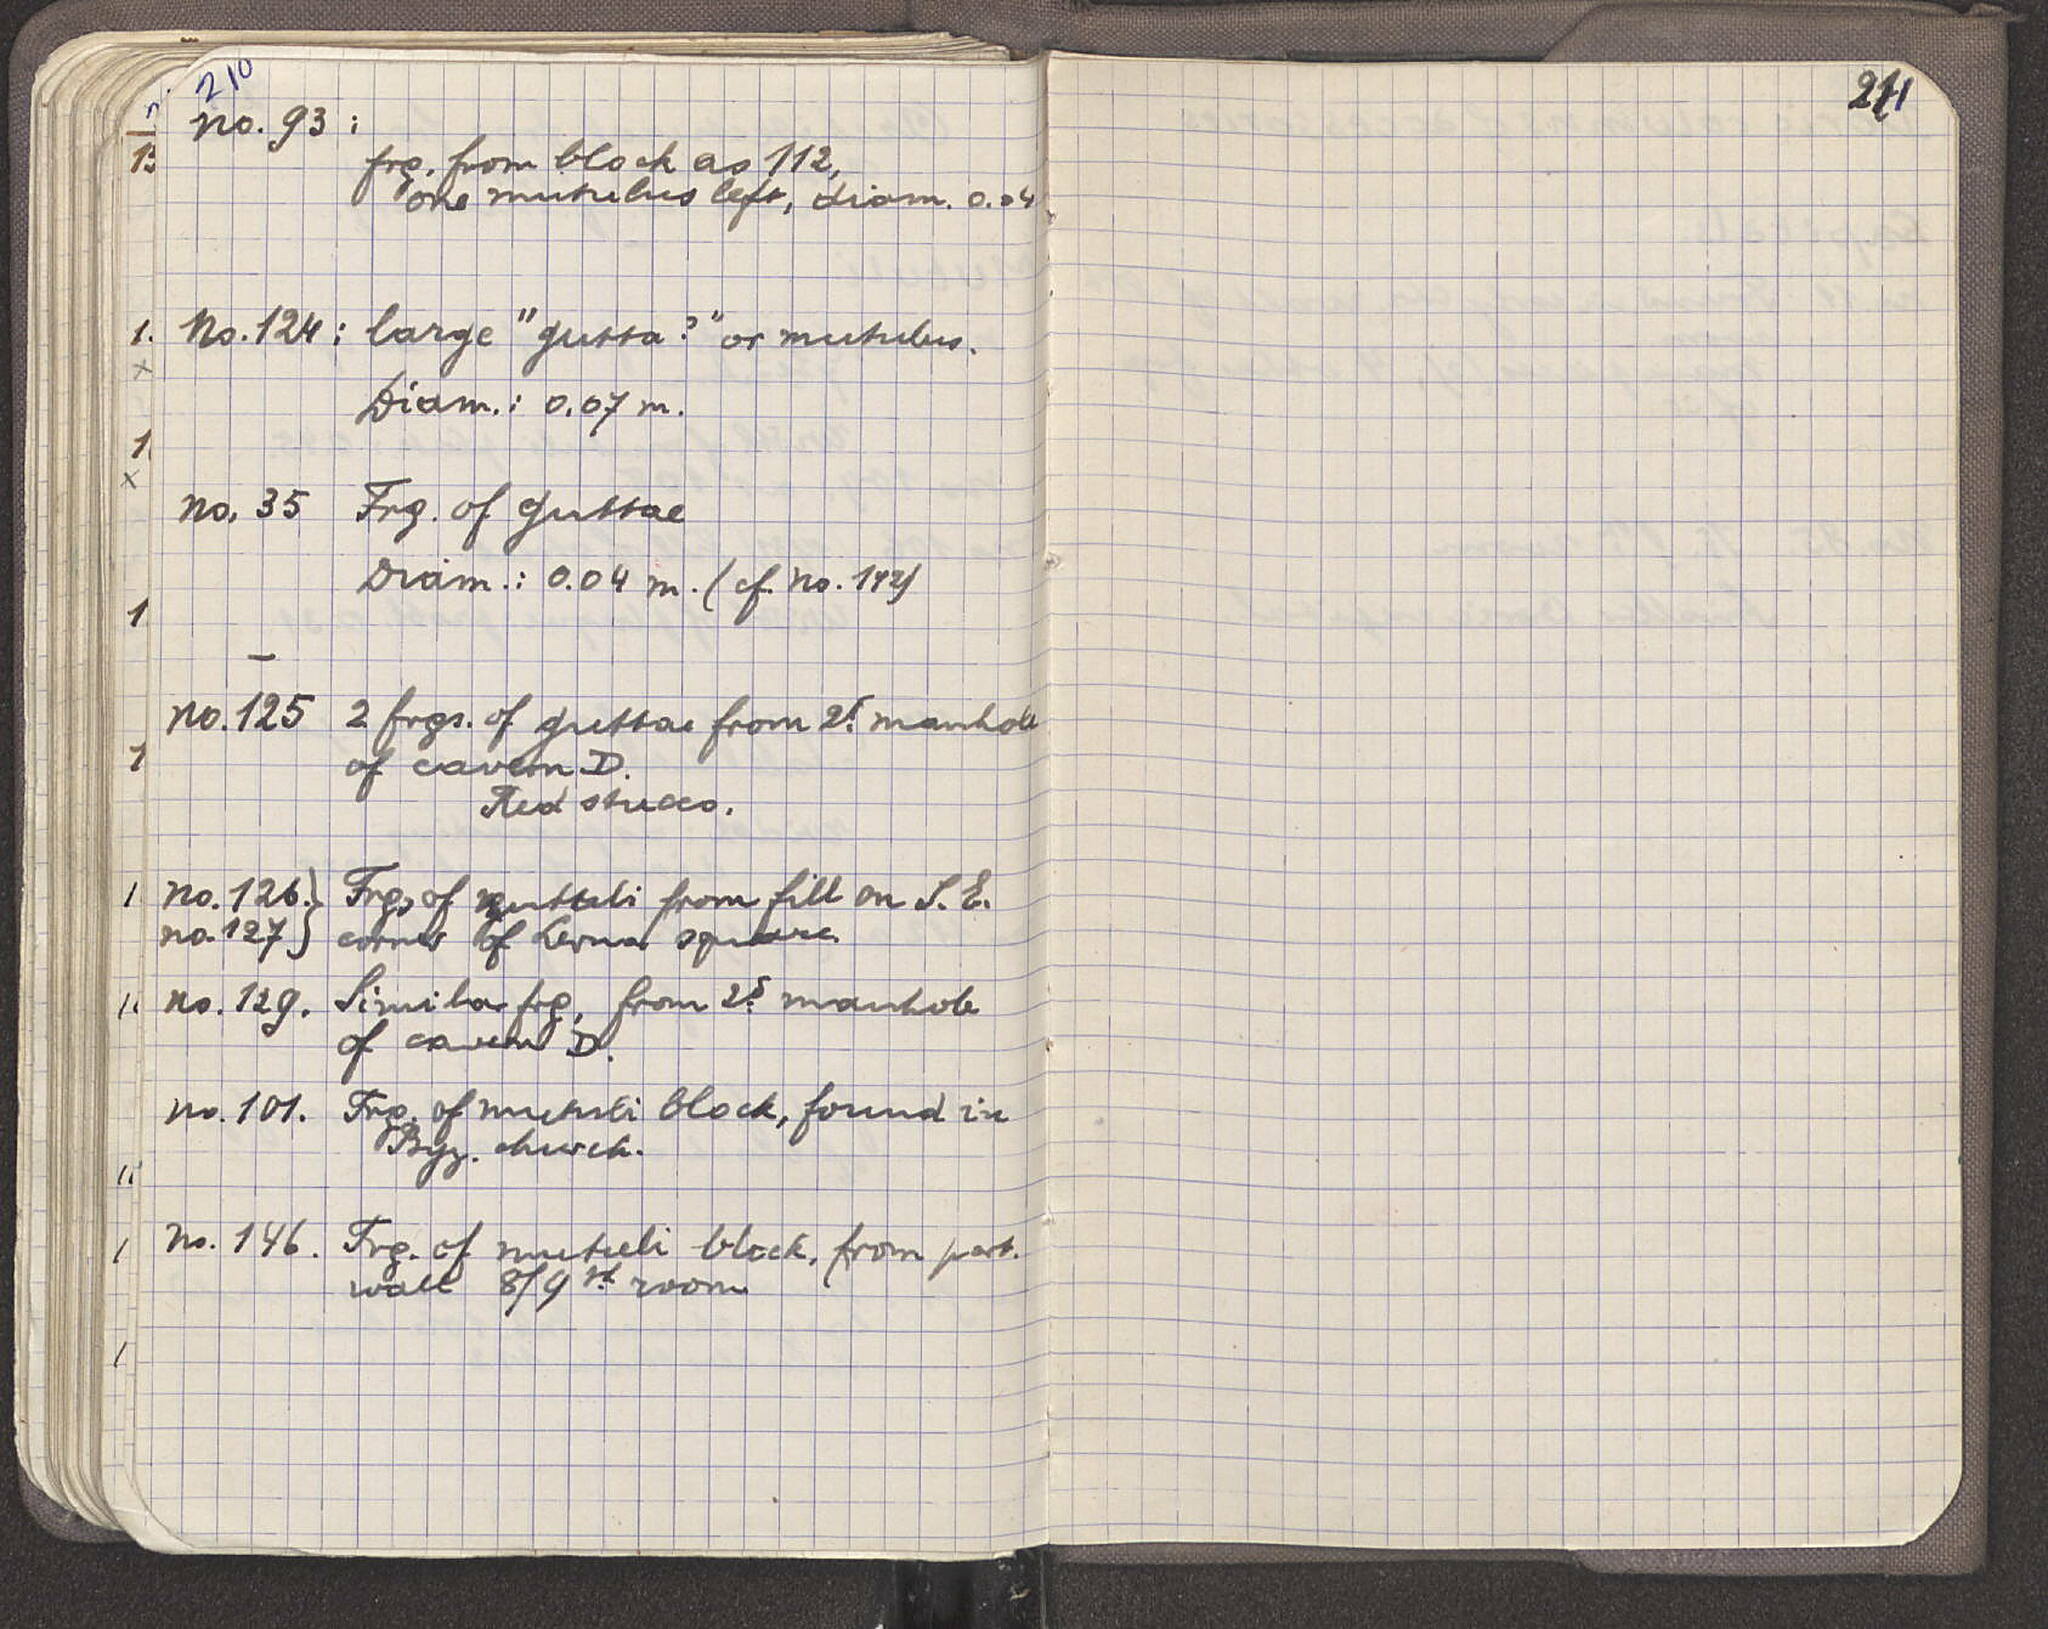 210
no. 93 :
frg. from block as 112,
one mutulus left, diam. 0.04
No. 124 : large "gutta?" or mutulus.
Diam. : 0.07 m.
no. 35 Frg. of guttae
Diam. : 0.04 m. (cf. no. 142)
no. 125 2 frgs. of guttae from 2d. manhole
of cavern D.
Red stucco.
no. 126 } Frgs of mutuli from fill on S.E.
no. 127 } corner of Lerna square.
no. 129. Similar frg, from 2d. manhole
of cavern D.
no. 101. Frg. of mutuli block, found in
Byz. church.
no. 146. Frg. of mutuli block, from part.
wall 8/9 room
211